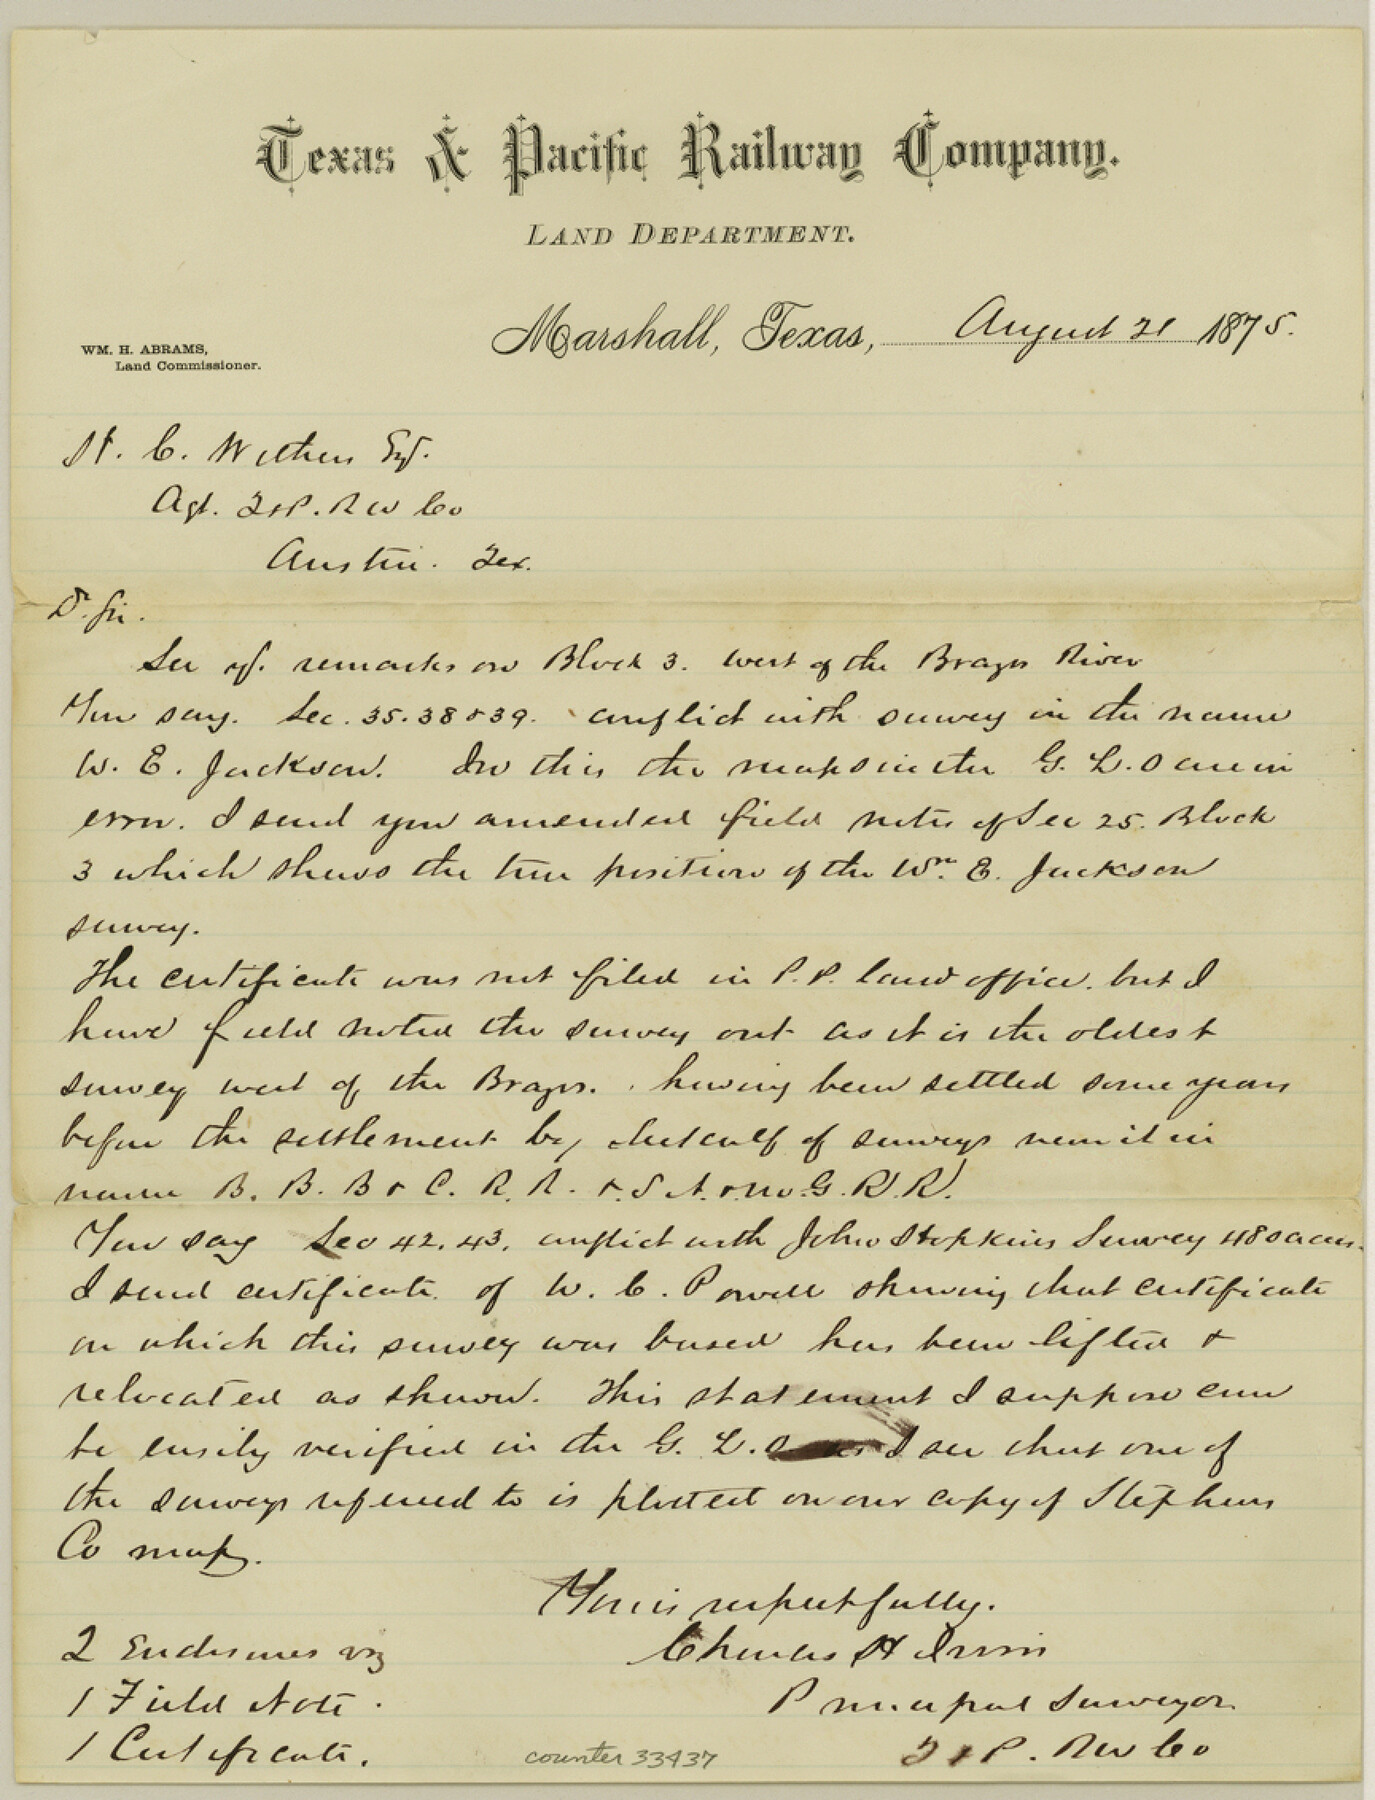 Texas & Pacific Railway Company.
LAND DEPARTMENT.
WM. H. ABRAMS,
Land Commissioner.
Marshall, Texas, August 21 1875.
H. C. Withers Esq.
Agt. T & P. R W Co
Austin. Tex.
Dr. Sir.
See yr. remarks on Block 3. West of the Brazos River
You say. Sec. 35. 38 & 39. conflict with survey in the name
W. E. Jackson. In this the maps in the G. L. O are in
error. I send you amended field notes of Sec 25. Block
3 which shows the true position of the Wm. E. Jackson
survey.
The certificate was not filed in P. P. land office. but I
have field noted the survey out as it is the oldest
survey west of the Brazos. having been settled some years
before the settlement by Metcalf of surveys near it in
name B. B. B & C. R. R. & S A. & M. G. R. R.
You say Sec 42. 43. conflict with John Hopkins Survey 480 acres.
I send certificate of W. C. Powell showing that certificate
on which this survey was based has been lifted &
relocated as shown. This statement I suppose can
be easily verified in the G. L. O as I see that one of
the surveys referred to is plotted on our copy of Stephens
Co map.
Yours respectfully.
Charles H Irvin
Principal Surveyor
T & P. R W Co
2 Enclosures viz
1 Field Note.
1 Certificate.
counter 33437